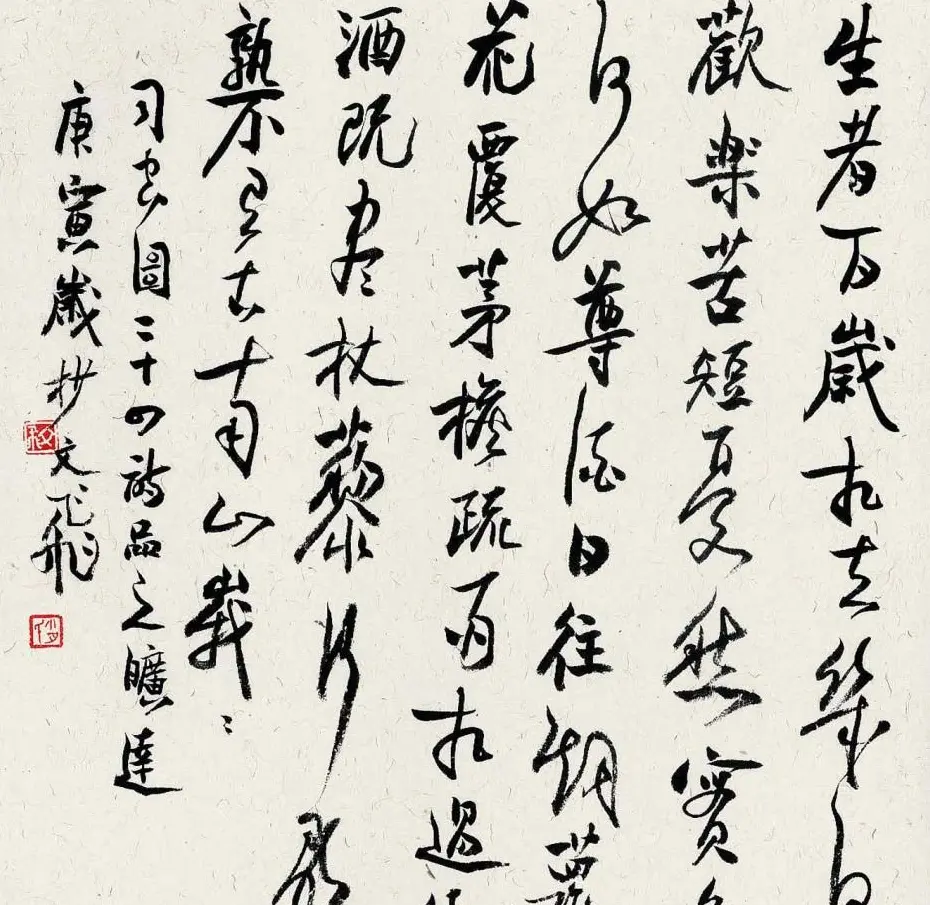 生者百歲相去幾何
歡楽苦短憂愁實多
何如尊酒日往烟蘿
花覆茅檐疏雨相過
酒既盡杖藜行歌
孰不有古南山峩〻
司空圖二十四詩品之曠達
庚寅歲杪文